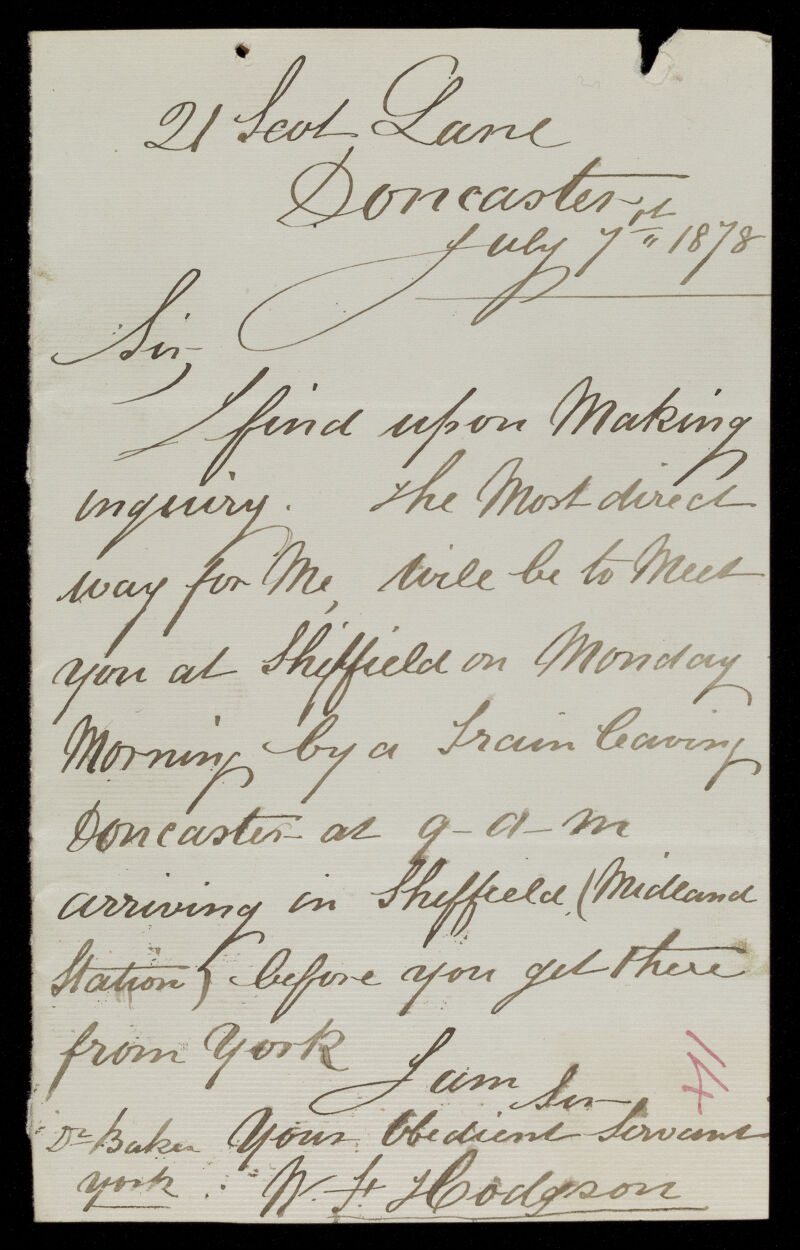 21 Scot Lane
Doncaster
July 7th 1878
Sir
I find upon Making
inquiry. the Most direct
way for Me, will be to Meet
you at Sheffield on Monday
Morning by a train leaving
Doncaster at 9-a-m
arriving in Sheffield (Midland
Station) before you get there
from York
I am Sir
Your Obedient Servant
W. F. Hodgson
Dr Baker
York